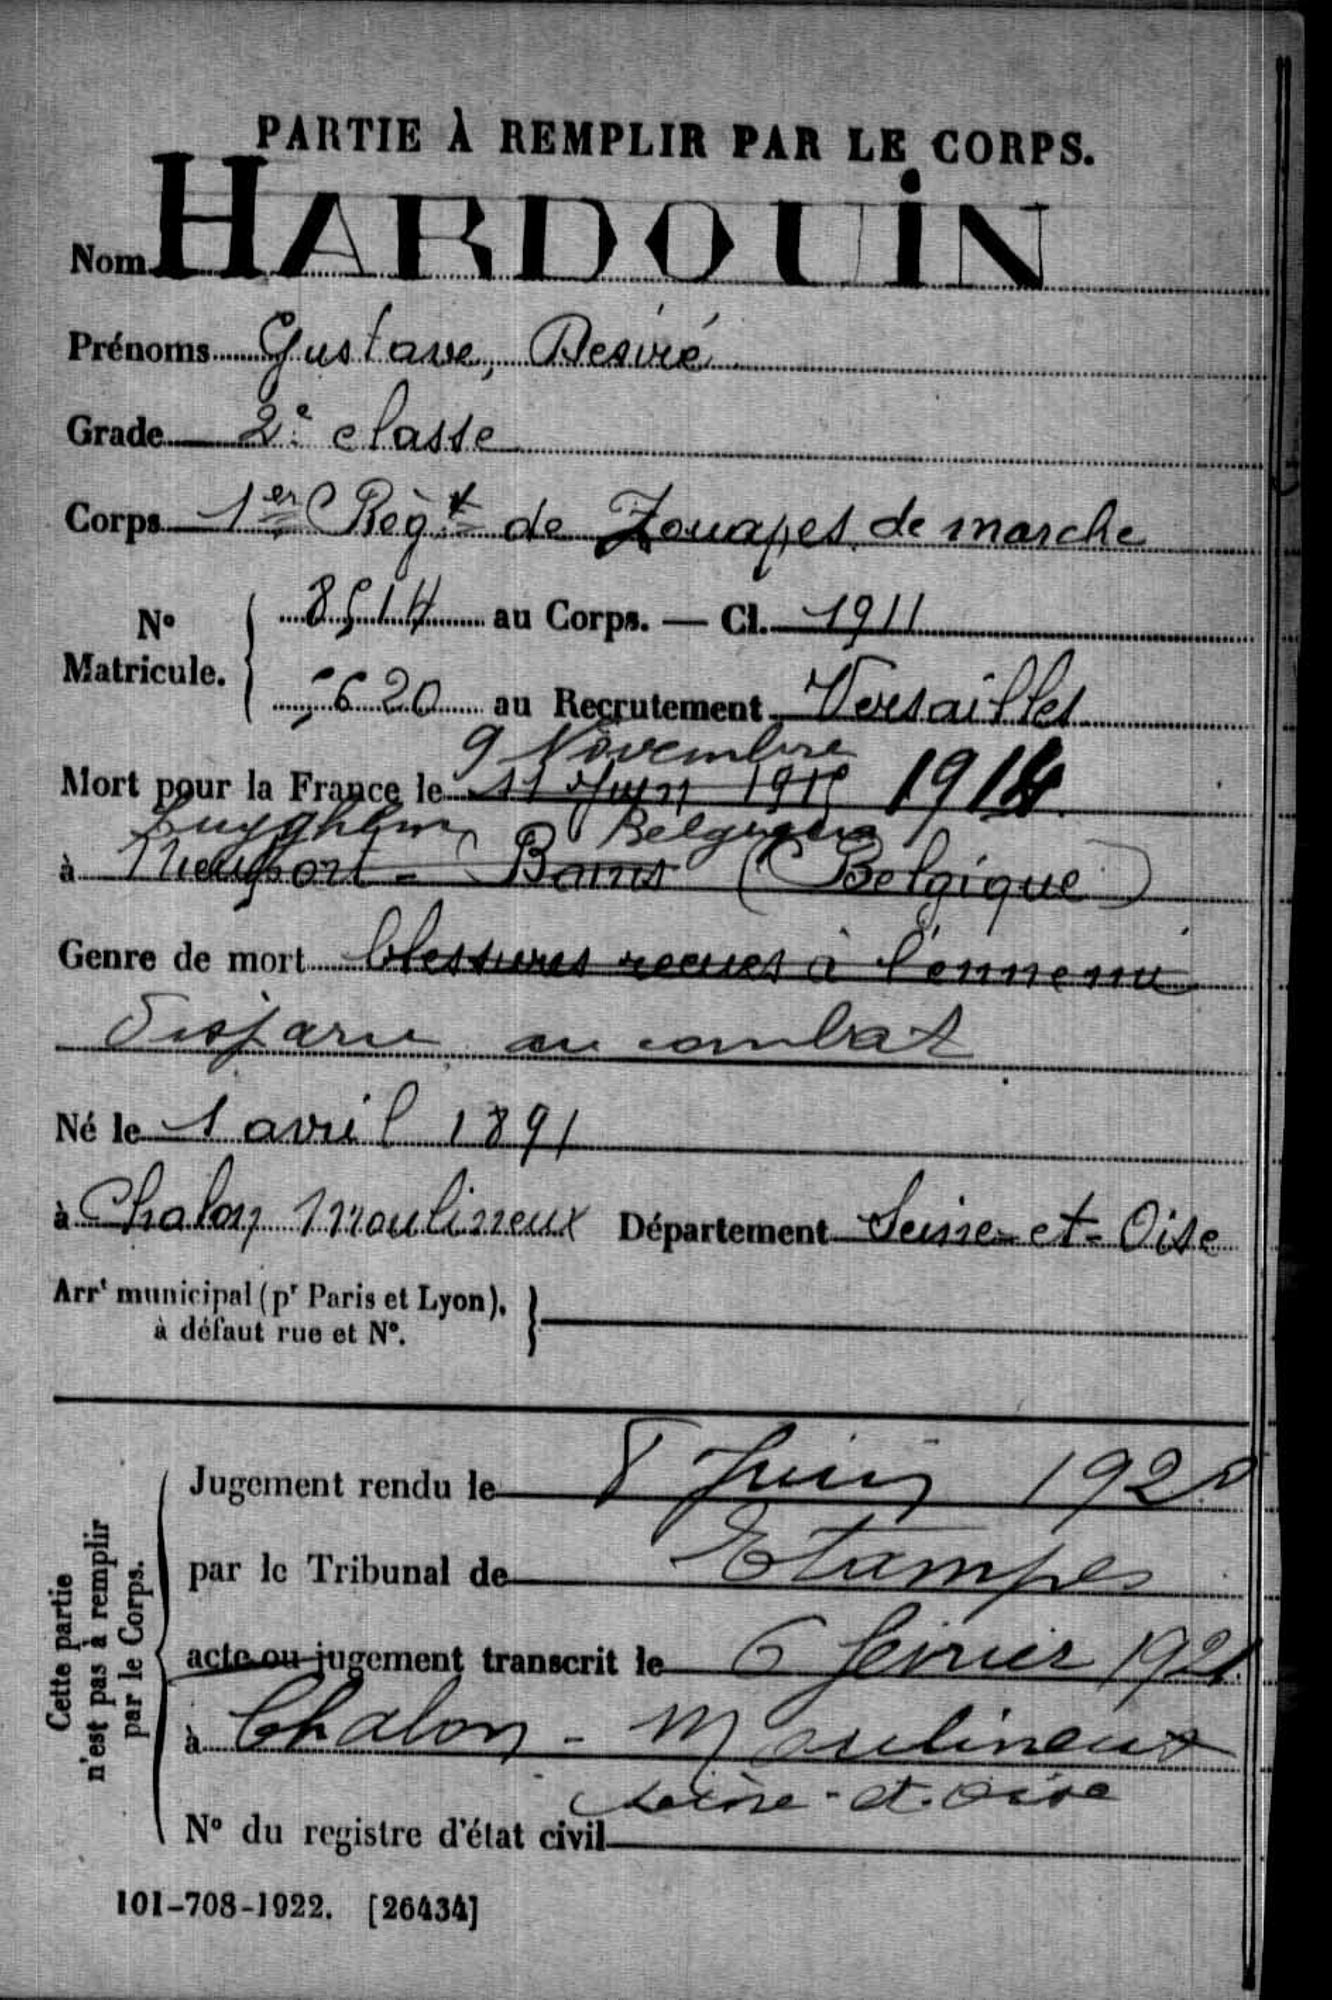 PARTIE À REMPLIR PAR LE CORPS.
Nom HARDOUIN
Prénoms Gustave, Desiré
Grade 2e classe
Corps 1er Règt de Zouaves de marche
No Matricule. 8514 au Corps. — Cl. 1911
620 au Recrutement Versailles
9 Novembre
Mort pour la France le 11 Juin 1915 1914
Belgique
à Nieuport - Bains (Belgique)
Genre de mort blessures recues à l'ennemi
Disparu au combat
Né le 1 avril 1891
à Chalon Moulineux Département Seine-et-Oise
Arrt municipal (pr Paris et Lyon),
à défaut rue et No.
Cette partie
n'est pas à remplir
par le Corps.
Jugement rendu le 8 Juin
par le Tribunal de Etampes
acte ou jugement transcrit le 6 février 1921
à Chalon - Moulineux
Seine-et-Oise
No du registre d'état civil
101-708-1922. [26434]